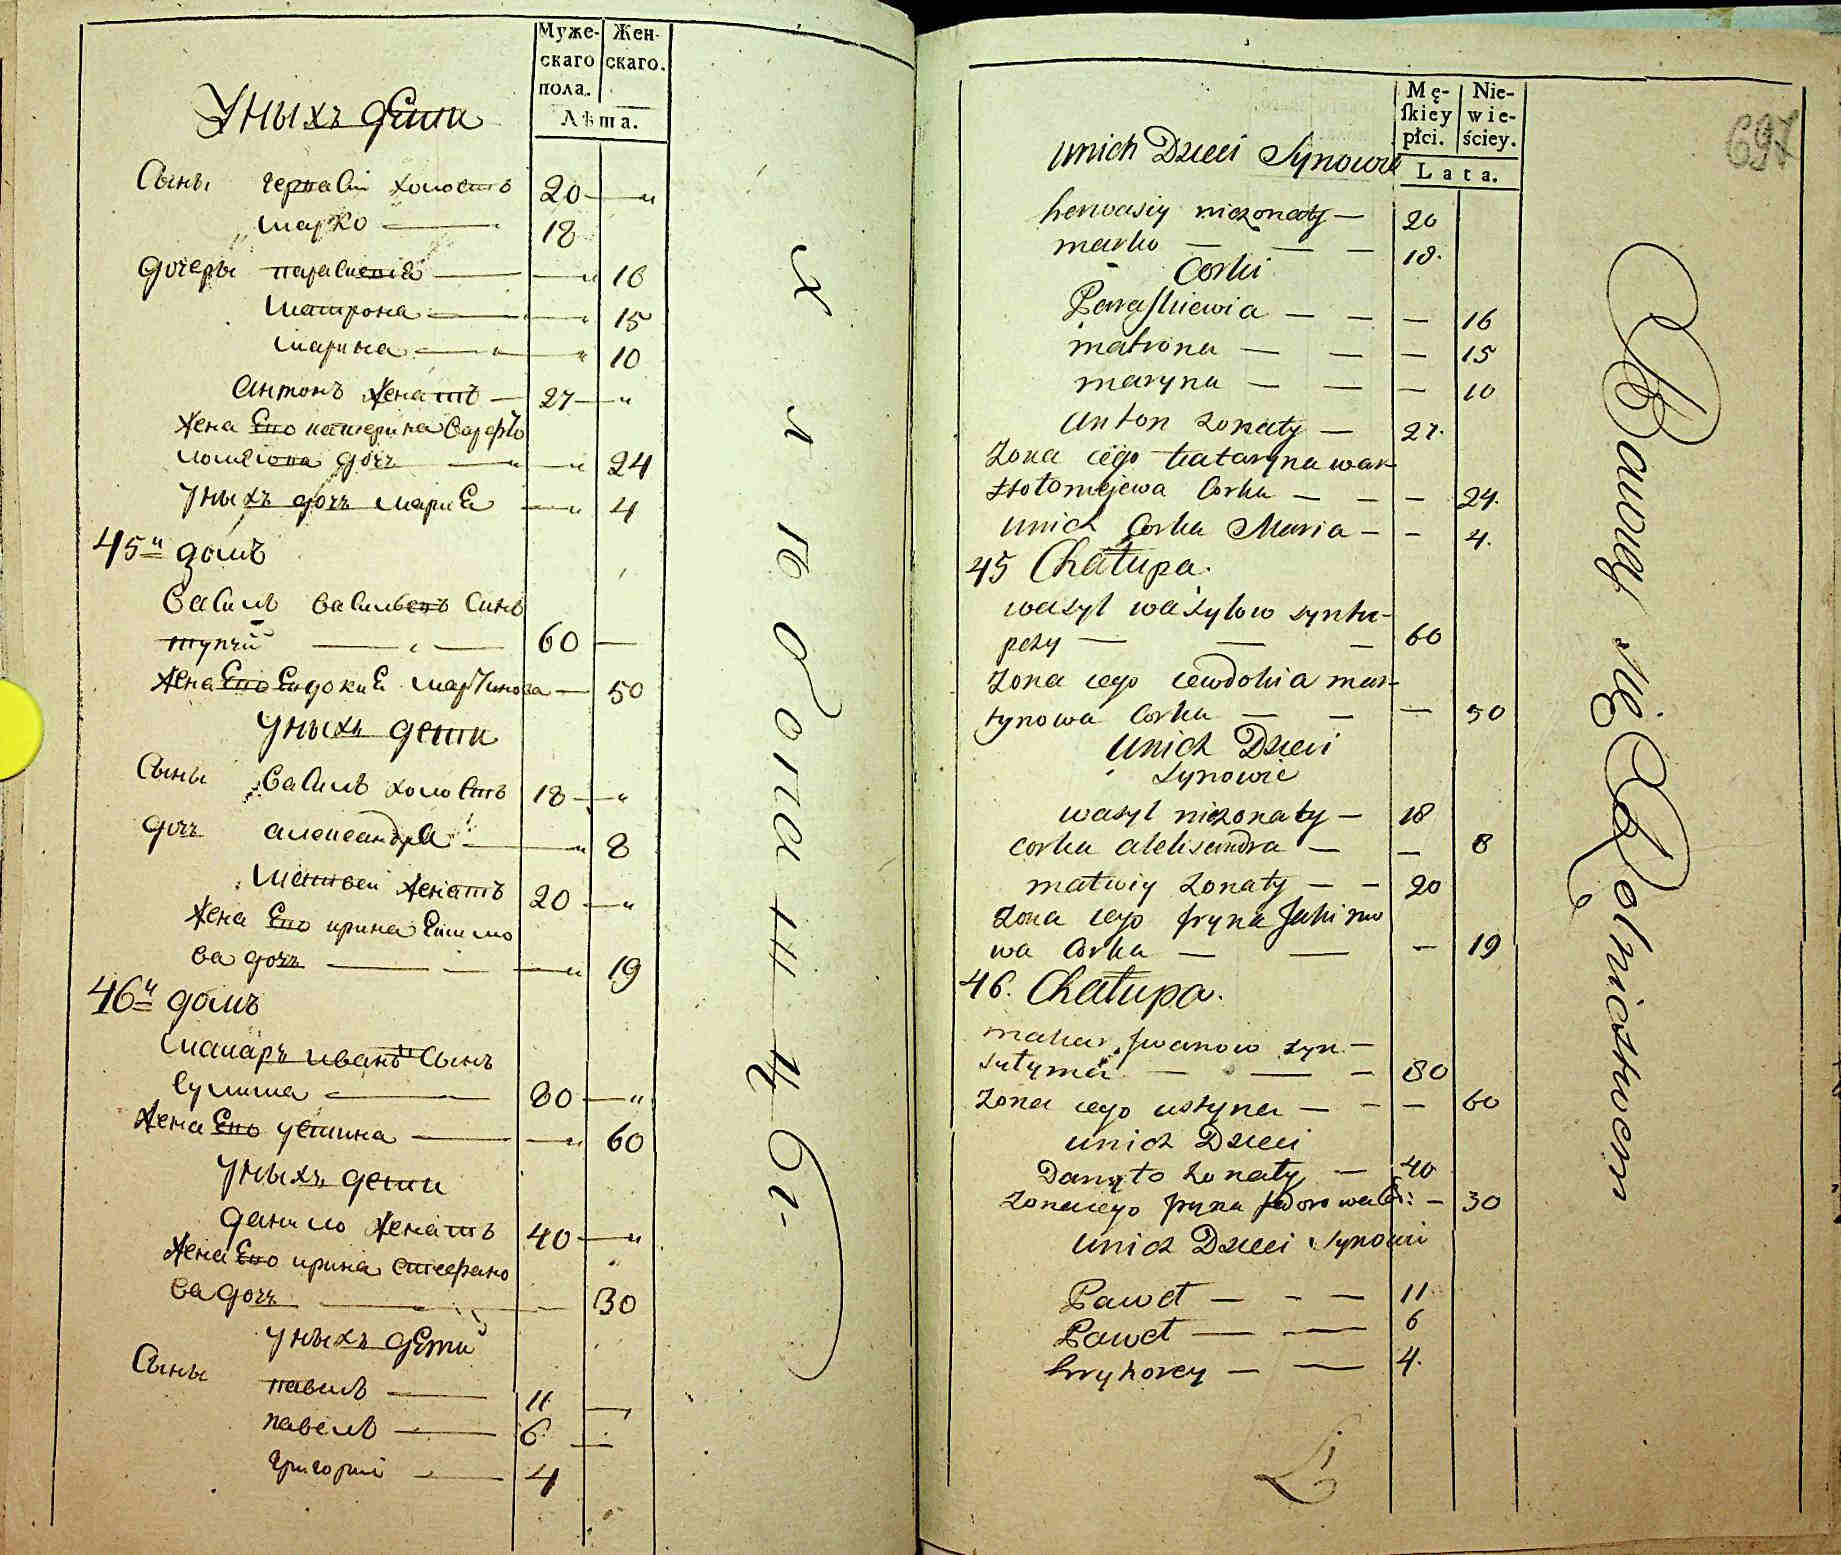 Муже-
скаго
пола.
Жен-
скаго.
Лѣта.
Уныхъ дети
Сыны гервасій холостъ 20 "
марко 18
дочеры параскевіа " 16
матрона " 15
марина " 10
антонъ женатъ 27 "
жена Его катерина варфо
ломѣева дочь " 24
Уныхъ дочь мариЕ " 4
45й домъ
василь васильевъ синъ
тупчій 60
жена Его Евдокия мартинова 50
Уныхъ дети
Сыны василь холостъ 18 "
дочь александра " 8
матвеи женатъ 20 "
жена Его ирина Екимо
ва дочь " 19
46й домъ
макаръ ивановъ Сынъ
сулима 80 "
жена Его устина " 60
Уныхъ дети
данило женатъ 40 "
жена Его ирина
ва дочь 30
Уныхъ дети
Сыны
павелъ 11
павелъ 6
григорий 4
Mę-
ſkiey
płci.
Nie-
wie-
ściey.
Lata.
697
unich Dzieci Synowie
herwasiy niezonaty — 20
marko — — — 18.
Corki
Paraſkiewia — — — 16
matrona — — — 15
maryna — — — 10
Anton zonaty — 27.
Zona iego katarzyna war
tłołomiejewa Corka — — — 24.
unich Corka Maria — — 4.
45 Chałupa.
wasyl wasylow syn tu-
pczy — — — 60
Zona iego iewdokia mar-
tynowa Corka — — — 50
unich Dzieci
Synowie
wasyl niezonaty — 18
corka aleksandra — — 8
matwiy zonaty — — 20
Zona iego Jryna Jakimo
wa Corka — — — 19
46. Chałupa.
makar Jwanow syn —
sułyma — — — 80
Zona iego ustyna — — — 60
unich Dzieci
Danyło zonaty — 40
Zona iego Jryna — 30
unich Dzieci Synowie
Paweł — — — 11
Paweł — — 6
hryhorey — — 4.
Bawią się Rolnictwem